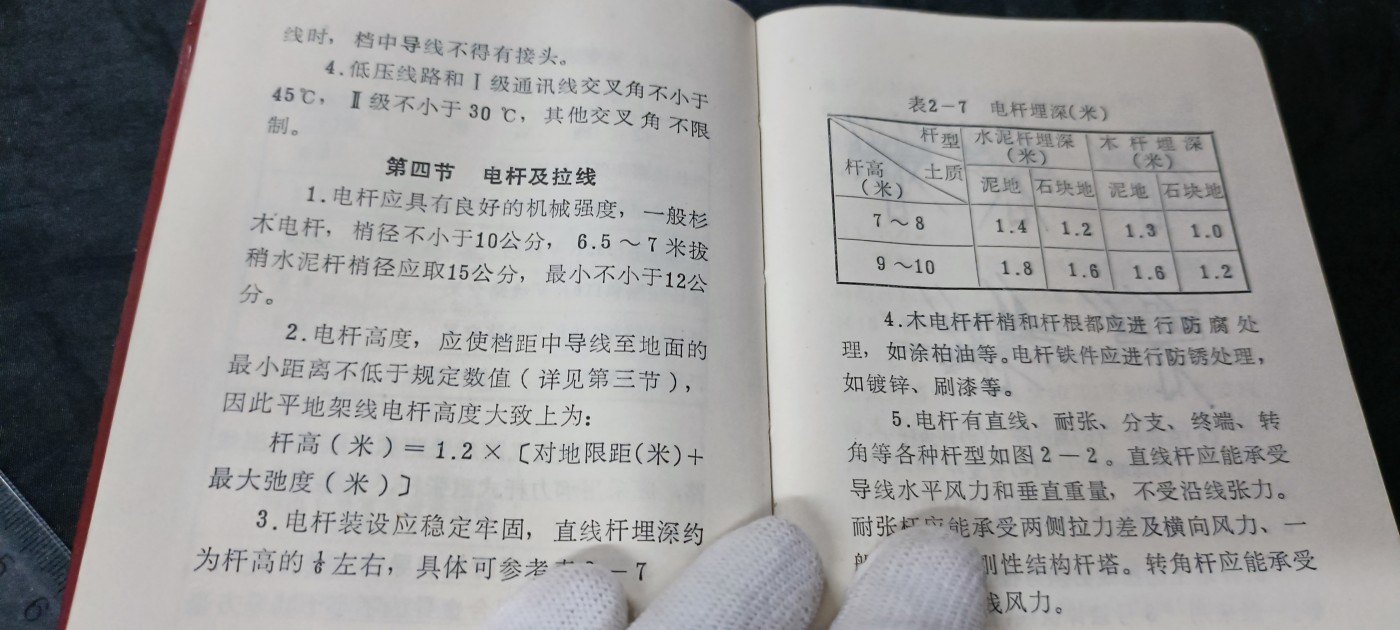 线时，档中导线不得有接头。
4.低压线路和Ⅰ级通讯线交叉角不小于
45℃，Ⅱ级不小于30℃，其他交叉角不限
制。
第四节 电杆及拉线
1.电杆应具有良好的机械强度，一般杉
木电杆，梢径不小于10公分，6.5～7米拔
稍水泥杆梢径应取15公分，最小不小于12公
分。
2.电杆高度，应使档距中导线至地面的
最小距离不低于规定数值（详见第三节），
因此平地架线电杆高度大致上为：
杆高（米）＝1.2×〔对地限距(米)＋
最大弛度（米）〕
3.电杆装设应稳定牢固，直线杆埋深约
为杆高的⅙左右，具体可参考 －7
表2－7 电杆埋深(米)
杆型 水泥杆埋深（米） 木杆埋深（米）
杆高（米） 土质 泥地 石块地 泥地 石块地
7～8 1.4 1.2 1.3 1.0
9～10 1.8 1.6 1.6 1.2
4.木电杆杆梢和杆根都应进行防腐处
理，如涂柏油等。电杆铁件应进行防锈处理，
如镀锌、刷漆等。
5.电杆有直线、耐张、分支、终端、转
角等各种杆型如图2－2。直线杆应能承受
导线水平风力和垂直重量，不受沿线张力。
耐张杆应能承受两侧拉力差及横向风力、一
刚性结构杆塔。转角杆应能承受
线风力。
5
6